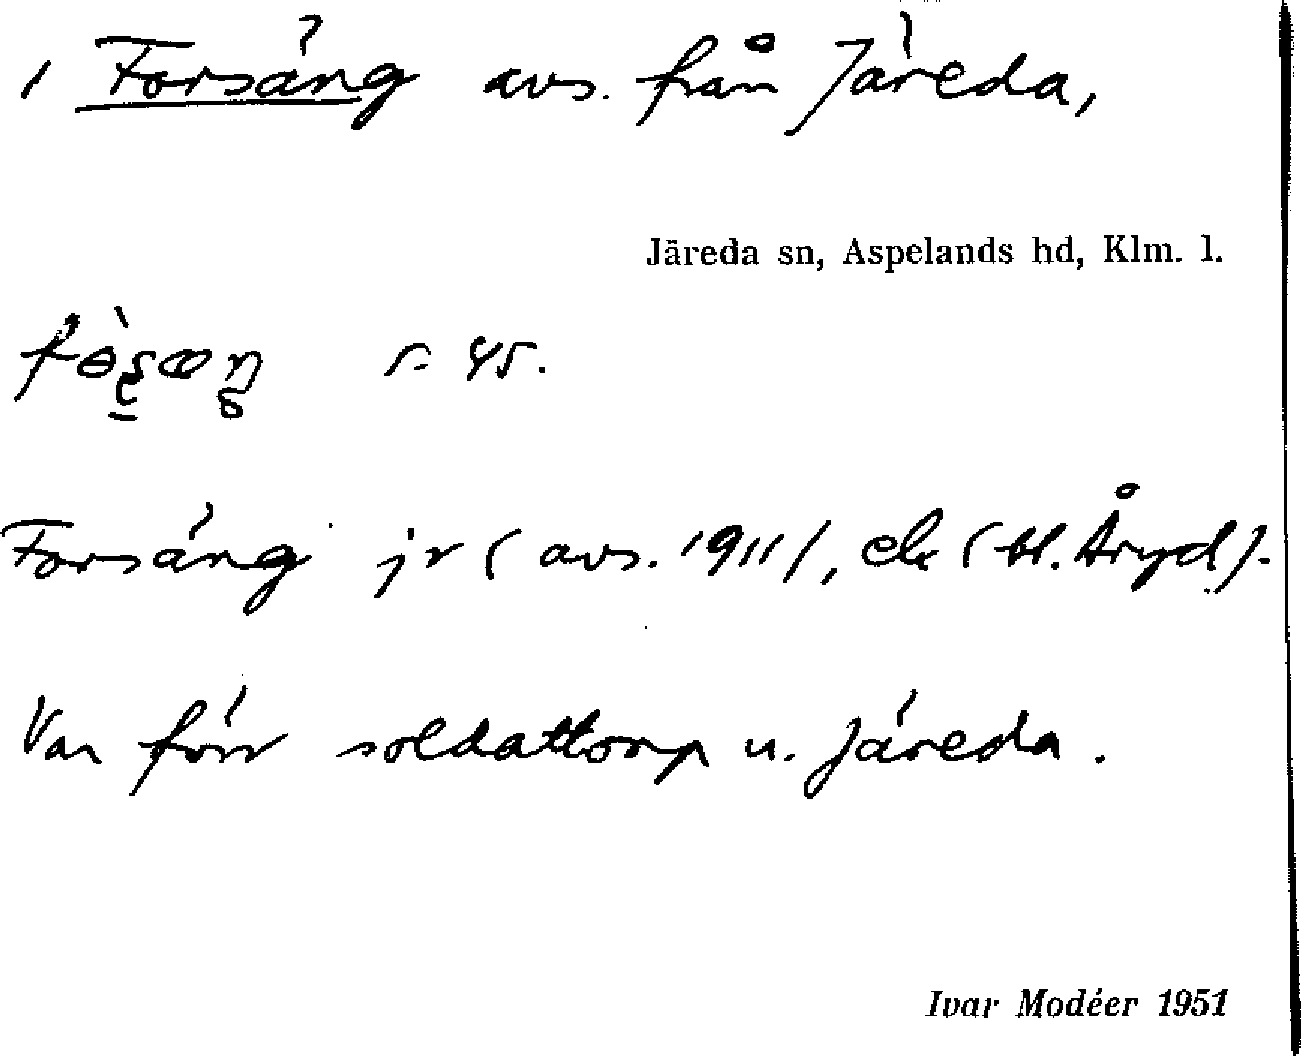 1 Forsäng avs. från Järeda,
Järeda sn, Aspelands hd, Klm. l.
s. 45.
Forsäng jr (avs. 1911), ek (bl. Åryd).
Var förr soldattorp u. Järeda.
Ivar Modéer 1951